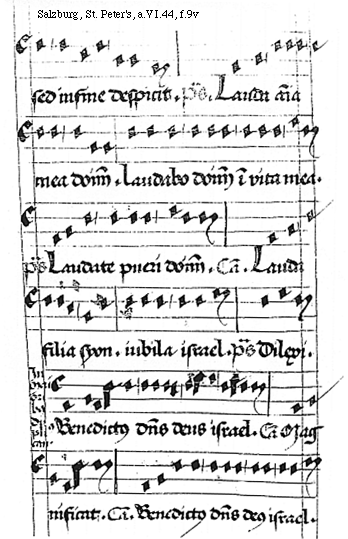 Salzburg, St. Peter's, a.VI.44, f.9v
sed in fine despicit. p̄s. Lauda aīa
mea dom̄. Laudabo dom̄ ī vita mea.
p̄s Laudate pueri dom̄. Ca. Lauda
filia syon. iubila israel. p̄s Dilexi.
Benedictꝰ dn̄s deus israel. Ca Mag
nificat. Ca. Benedictꝰ dn̄s deꝰ israel.